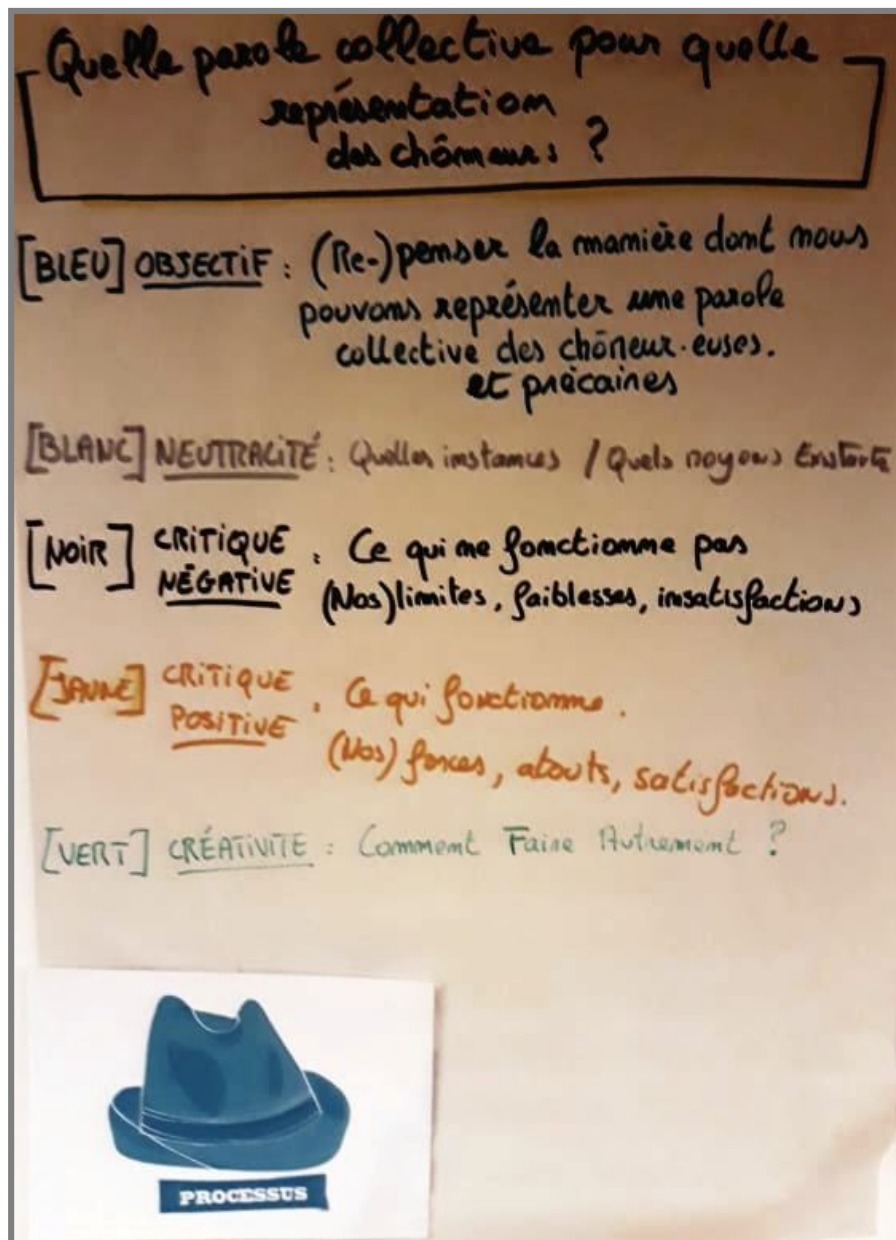 Quelle parole collective pour quelle
représentation
des chômeurs ?
[BLEU] OBJECTIF : (Re-)penser la manière dont nous
pouvons représenter une parole
collective des chômeur·euses.
et précaires
[BLANC] NEUTRALITÉ : Quelles instances / Quels moyens
[NOIR] CRITIQUE NÉGATIVE : Ce qui ne fonctionne pas
(Nos) limites, faiblesses, insatisfactions
[JAUNE] CRITIQUE POSITIVE : Ce qui fonctionne.
(Nos) forces, atouts, satisfactions.
[VERT] CRÉATIVITÉ : Comment Faire Autrement ?
PROCESSUS